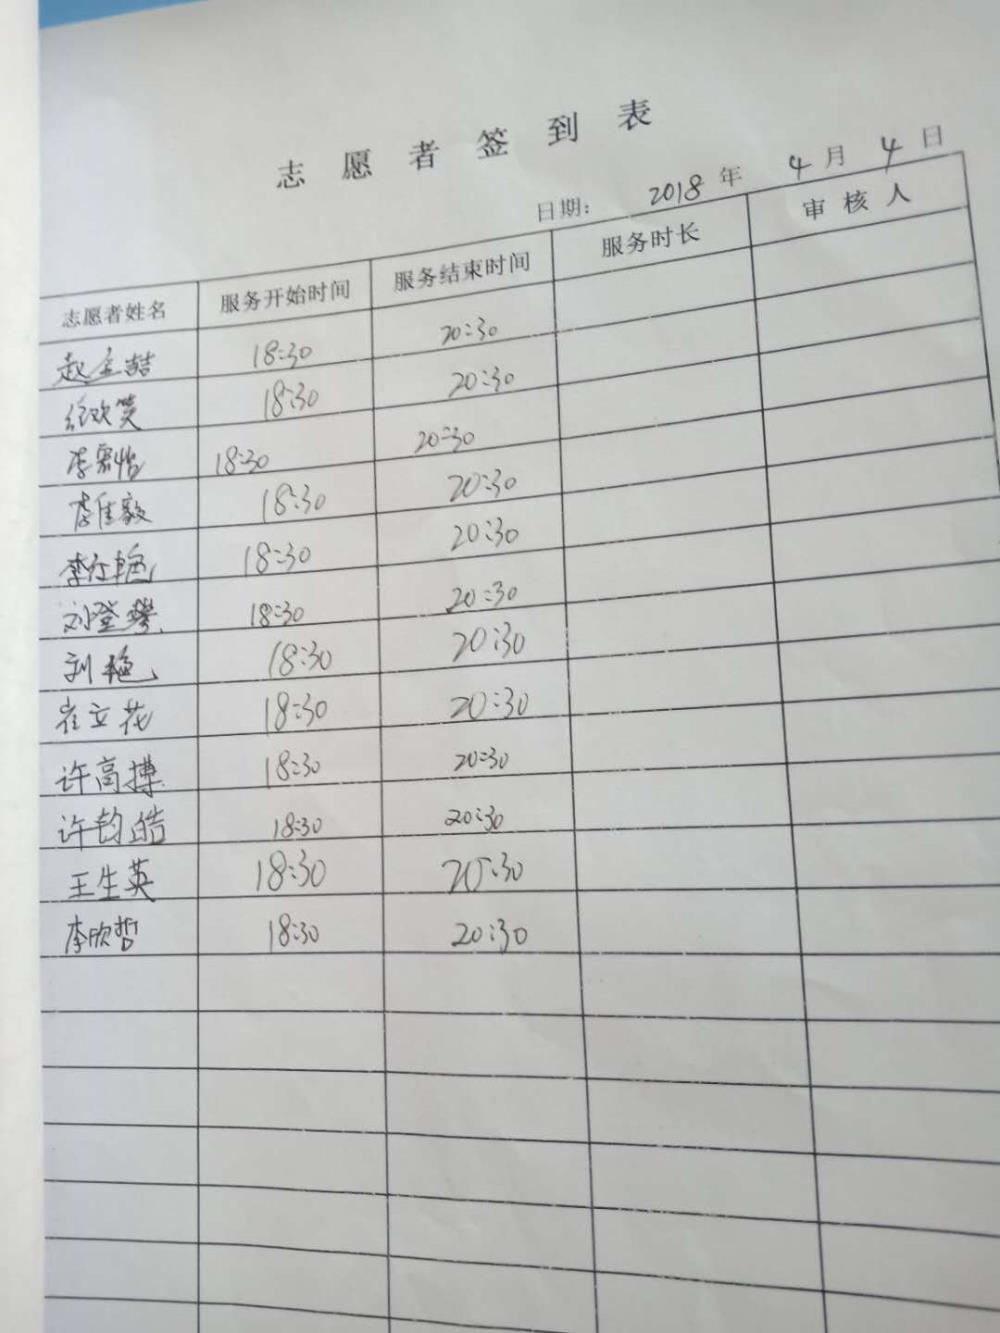 志愿者签到表
日期: 2018年4月4日
志愿者姓名 服务开始时间 服务结束时间 服务时长 审核人
赵 喆 18:30 20:30
欢笑 18:30 20:30
李 怡 18:30 20:30
李佳毅 18:30 20:30
李 艳 18:30 20:30
刘登攀 18:30 20:30
刘艳 18:30 20:30
崔立花 18:30 20:30
许高搏 18:30 20:30
许钧皓 18:30 20:30
王生英 18:30 20:30
李欣哲 18:30 20:30